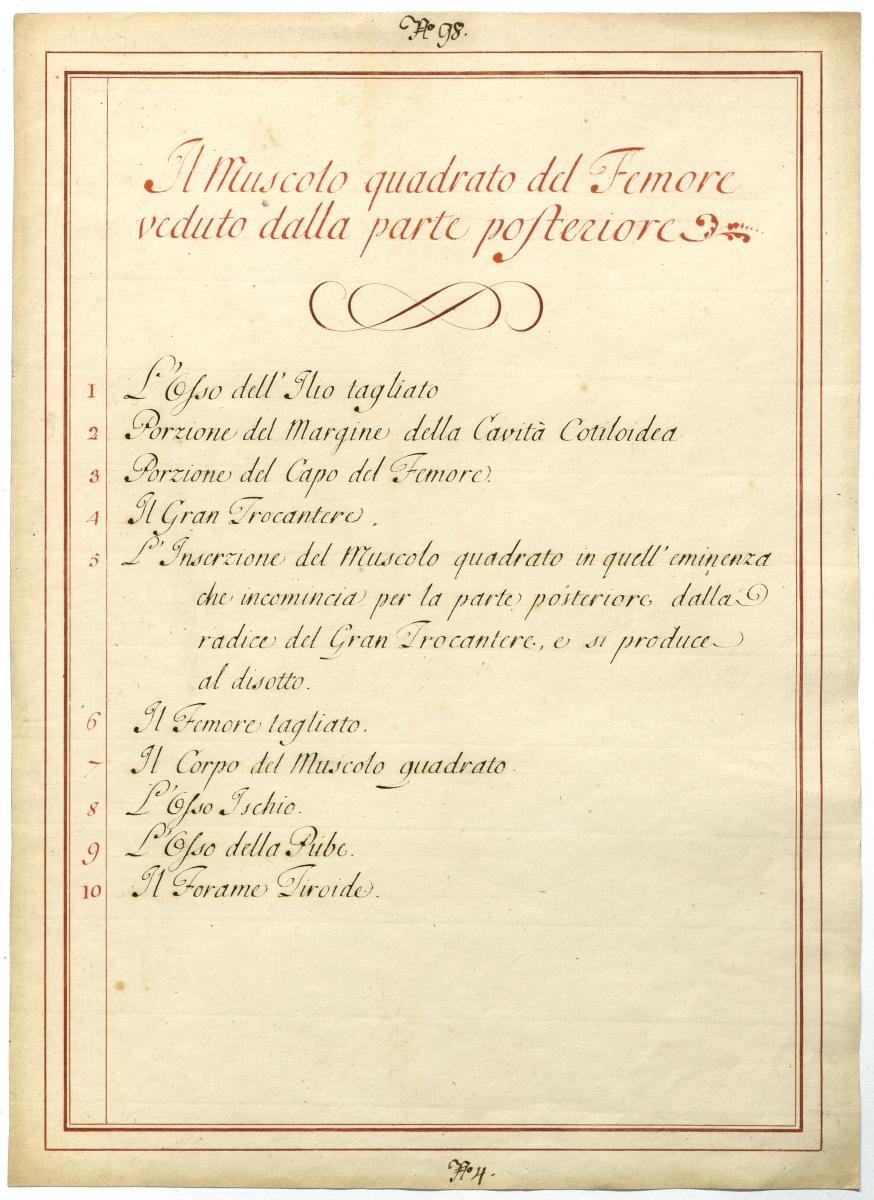 No 98.
Il Muscolo quadrato del Femore
veduto dalla parte posteriore
1 L'Osso dell'Ilio tagliato
2 Porzione del Margine della Cavità Cotiloidea
3 Porzione del Capo del Femore.
4 Il Gran Trocantere.
5 L'Inserzione del Muscolo quadrato in quell'eminenza
che incomincia per la parte posteriore dalla
radice del Gran Trocantere, e si produce
al disotto.
6 Il Femore tagliato.
7 Il Corpo del Muscolo quadrato.
8 L'Osso Ischio.
9 L'Osso della Pube.
10 Il Forame Tiroide.
No 4.